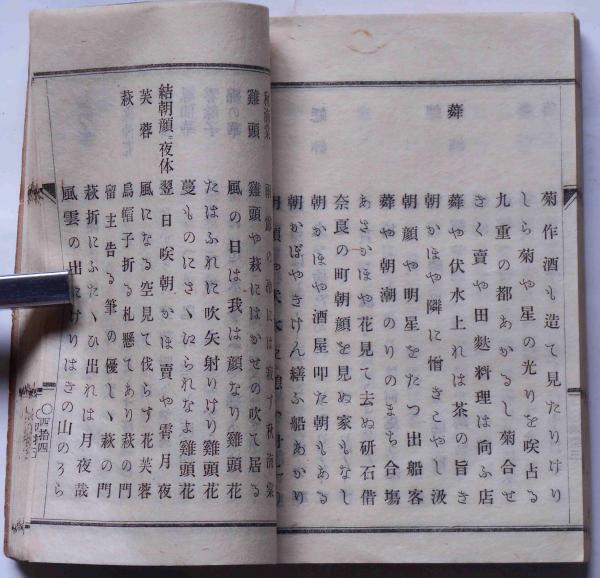 菊作酒も造て見たりけり
しら菊や星の光りを咲占る
九重の都あかるし菊合せ
きく賣や田麩料理は向ふ店
蕣
蕣や伏水上れは茶の旨き
朝かほや隣に憎きこやし汲
朝顔や明星をたつ出船客
蕣や朝潮のりのまち合塲
あさかほや花見て去ぬ研石借
奈良の町朝顔を見ぬ家もなし
朝かほや酒屋叩た朝もある
朝かほやきけん繕ふ船あかり
秋海棠
秋海棠
雞頭
雞頭や萩にはかせの吹て居る
風の日は我は顔なり雞頭花
たはふれに吹矢射りけり雞頭花
蔓ものにさゝひられなよ雞頭花
結朝顔ニ夜休
翌日咲朝かほ賣や雫月夜
芙蓉
風になる空見て伐らす花芙蓉
萩
烏帽子折る札懸てあり萩の門
留主告る筆の優しゝ萩の門
萩折にふたゝひ出れは月夜哉
風雲の出にけりはきの山のうら
○四拾四